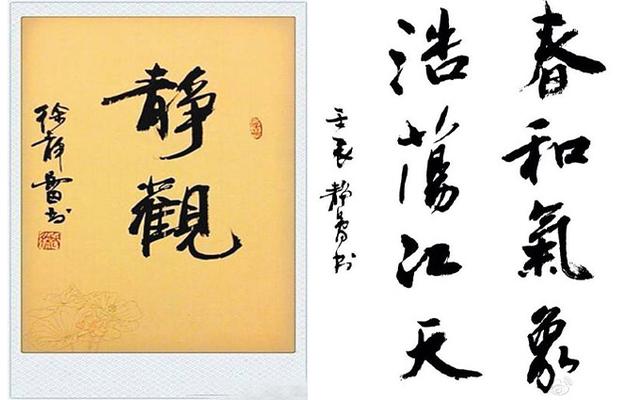 靜觀
徐靜蕾书
春和氣象
浩蕩江天
壬辰靜蕾书